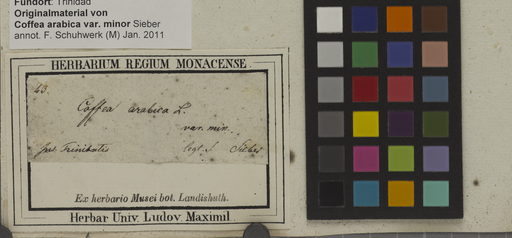 Fundort: Trinidad
Originalmaterial von
Coffea arabica var. minor Sieber
annot. F. Schuhwerk (M) Jan. 2011
HERBARIUM REGIUM MONACENSE
43.
Coffea arabica L.
var. min.
Trinitatis legt. Sieber
Ex herbario Musei bot. Landishuth.
Herbar Univ. Ludov. Maximil